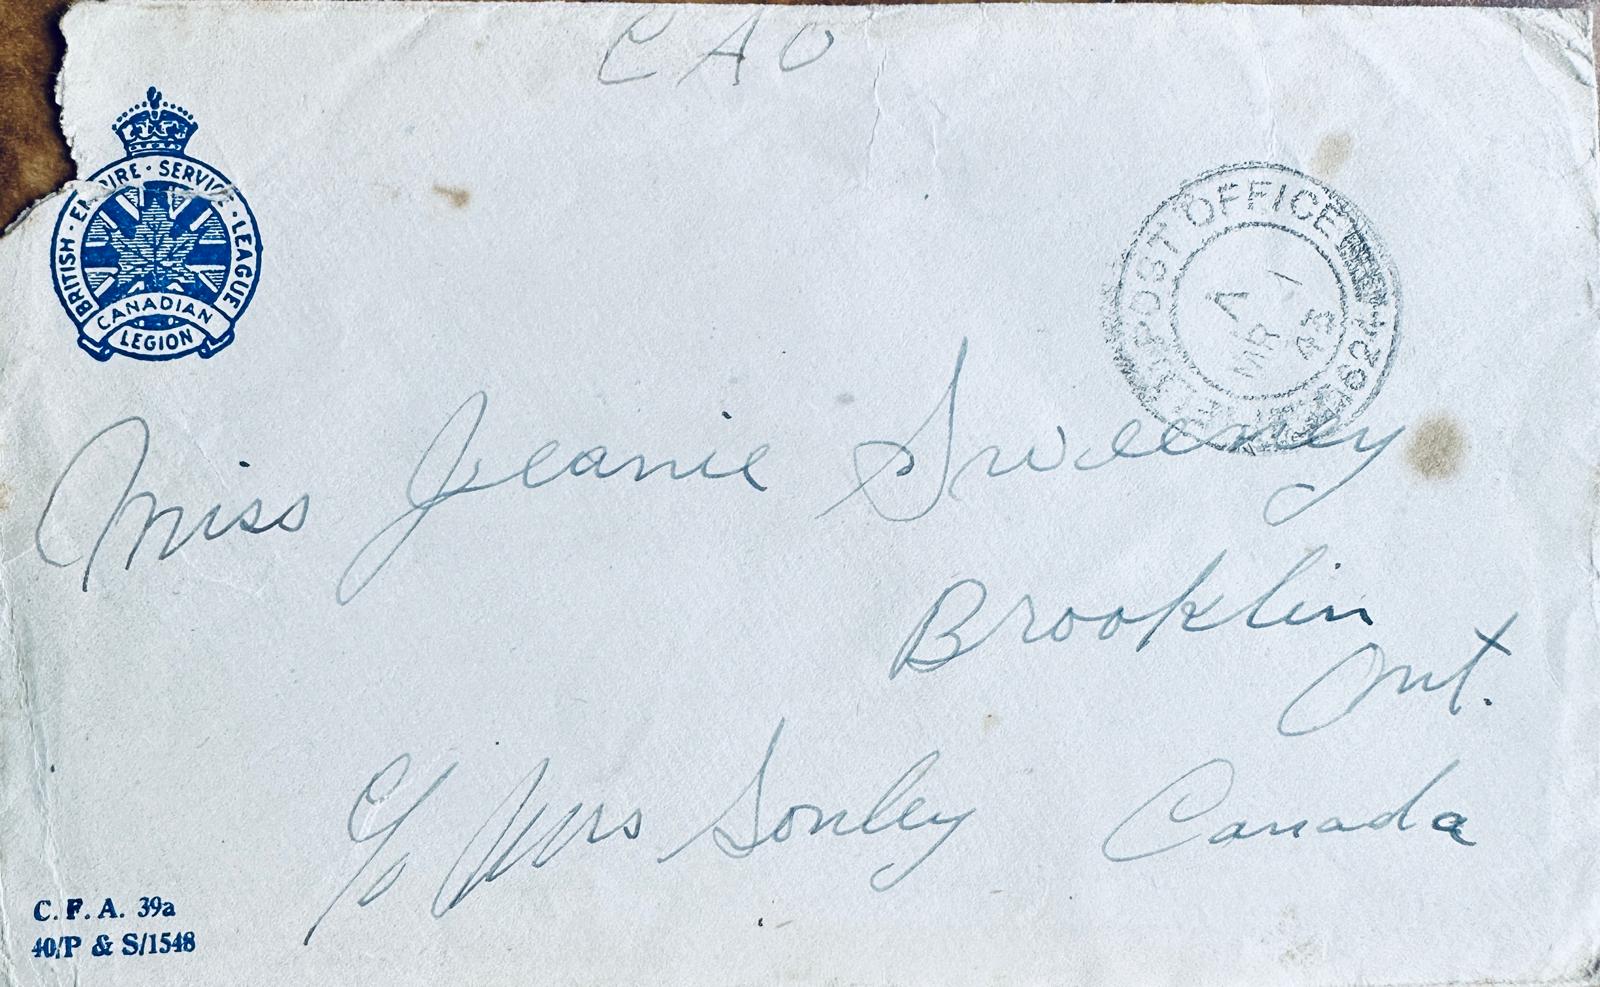 CAO
BRITISH · EMPIRE · SERVICE · LEAGUE
CANADIAN
LEGION
POST OFFICE
A
MR 1
45
Miss Jeanie Sweeney
Brooklin
Ont.
c/o Mrs Sonley Canada
C. F. A. 39a
40/P & S/1548